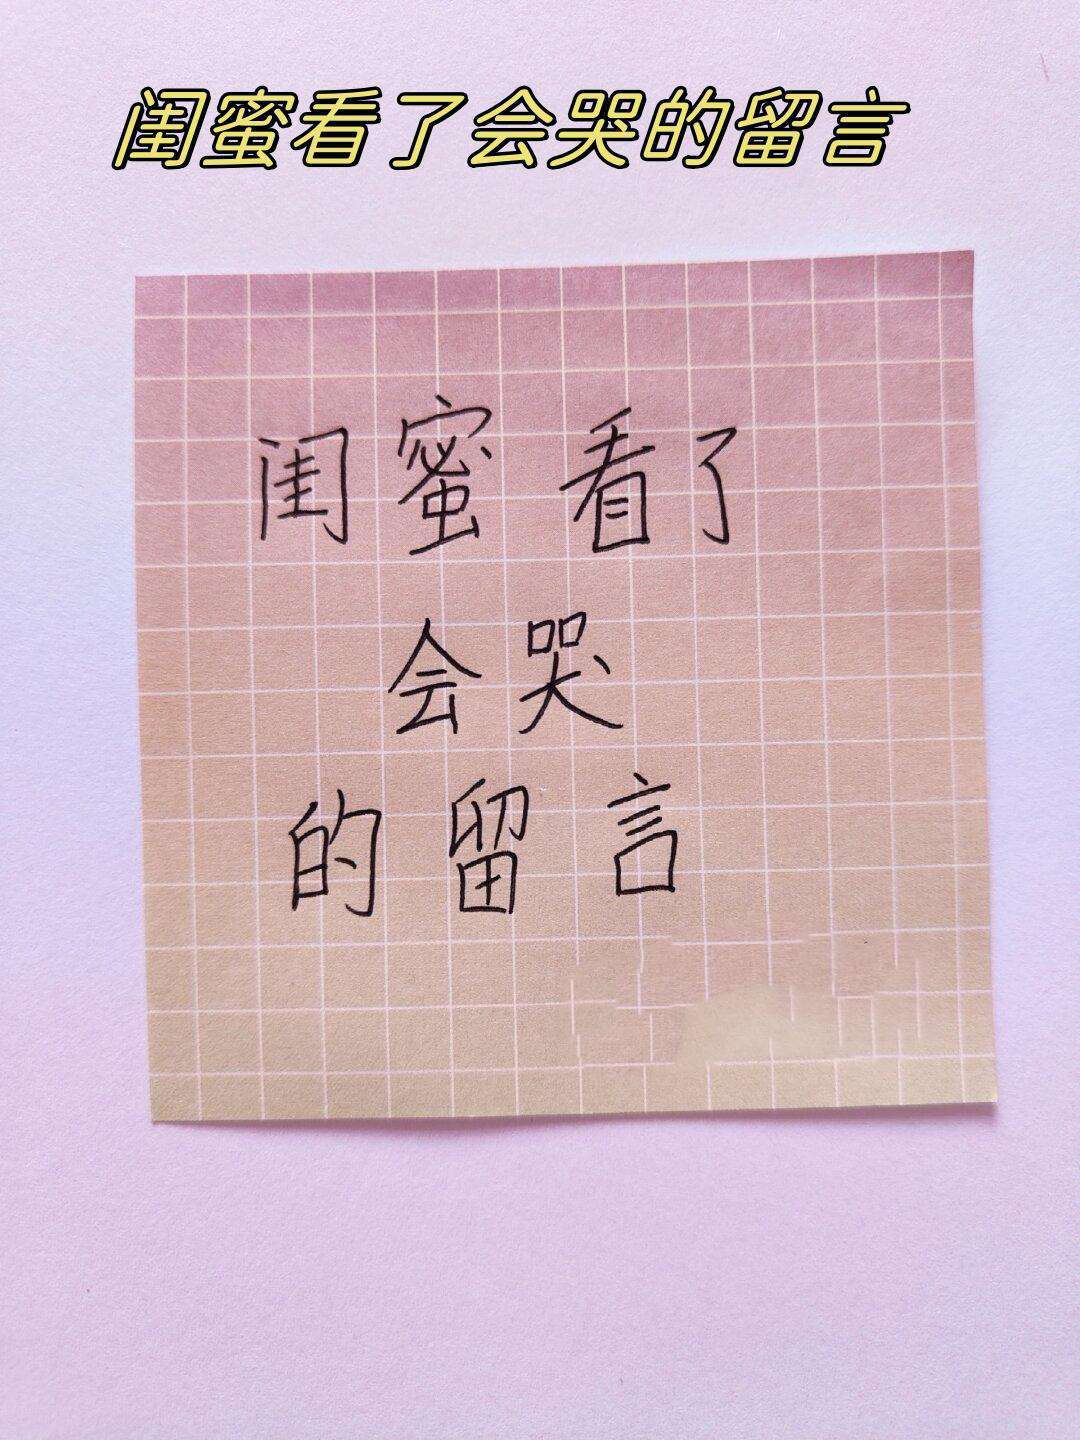 闺蜜看了会哭的留言
闺蜜看了
会哭
的留言